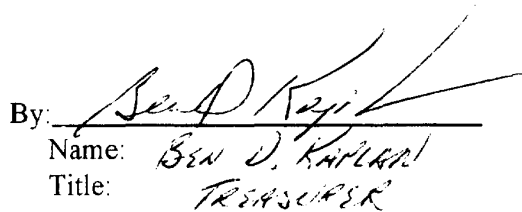 By: Ben D Kapl
Name: BEN D. KAPLAN
Title: TREASURER